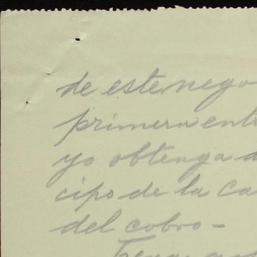 de este nego
primera ent
yo obtenga a
cipo de la ca
del cobro -